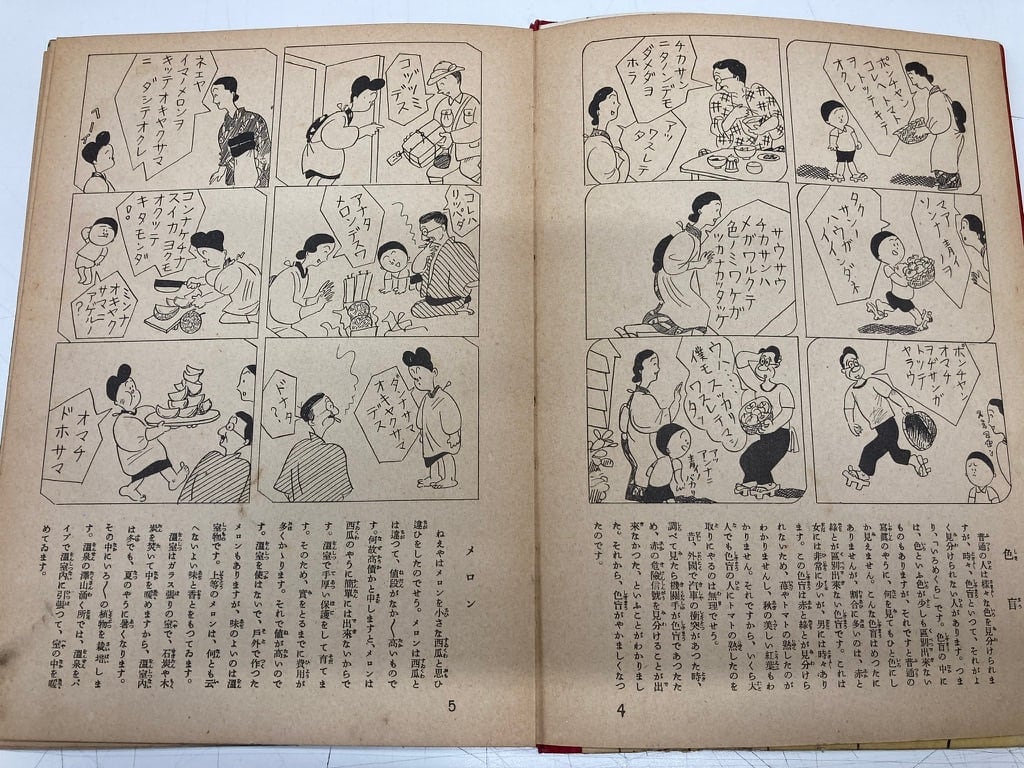 ポンチャン
コレヘトマト
ヲトッテキテ
オクレ
チカサン
ニタノンデモ
ダメダヨ
ホラ
アッ
ワスレテ
タ
マアー
ソンナ青イノヲ
タクサン
ノハウガ
イインダネ
サウサウ
チカサンハ
メガワルクテ
色ノミワケガ
ツカナカッタッケ
ポンチャン
オマチ
ヲヂサンガ
トッテ
ヤラウ
ウ……
僕モ
スッカリ
ワスレチマッ
タ
アッ
アンナニ
青イノバカリ
色盲
普通の人は様々な色を見分けられま
すが、時々、色盲といつて、それがよ
く見分けられない人があります。つま
り、「いろめくら」です。色盲の中に
は、色といふ色が少しも區別出來ない
ものもありますが、それですと普通の
寫眞のやうに、何を見てもひと色にし
か見えません。こんな色盲はめつたに
ありませんが、割合に多いのは、赤と
綠とが區別出來ない色盲です。これは
女には非常に少いが、男には時々あり
ます。この赤綠色盲は赤と綠とが見分けら
れないため、苺やトマトの熟したのが
わかりませんし、秋の美しい紅葉もわ
かりません。それですから、いくら大
人でも色盲の人にトマトの熟したのを
取りにやるのは無理でせう。
昔、外國で汽車の衝突があつた時、
調べて見たら機關手が色盲であつたた
め、赤の危險信號を見分けることが出
來なかつた、といふことがわかりまし
た。それから、色盲がやかましくなつ
たのです。
4
コヅツミ
デス
ネエヤ
イマノメロンヲ
キッテオキャクサマ
ニ ダシテオクレ
ヘーイ
コレハ
リッパダ
アナタ
メロンデスワ
コンナケチナ
スイカ ヨクモ
オクッテ
キタモンダ
ミンナ
オキャク
サマニ
アゲル
?
ダンナサマ
オキャクサマ
デス
ドナタ
?
オマチ
ドホサマ
メロン
ねえやはメロンを小さな西瓜と思ひ
違ひをしたのでせう。メロンは西瓜と
は違つて、値段がなか〱高いもので
す。何故高價かと申しますと、メロンは
西瓜のやうに簡單には出來ないからで
す。溫室で手厚い保護をして育てま
す。そのため、實をとるまでに費用が
多くかゝります。それで値が高いので
す。溫室を使はないで、戶外で作つた
メロンもありますが、味のよいのは溫
室物です。上等のメロンは、何とも云
へないよい味と香とをもつてゐます。
溫室はガラス張りの室で、石炭や木
炭を焚いて中を暖めますから、溫室內
は冬でも、夏のやうに暑くなります。
その中にいろ〱の植物を栽培しま
す。溫泉の澤山湧く所では、溫泉をパ
イプで溫室內に引張つて、室の中を暖
めてゐます。
5